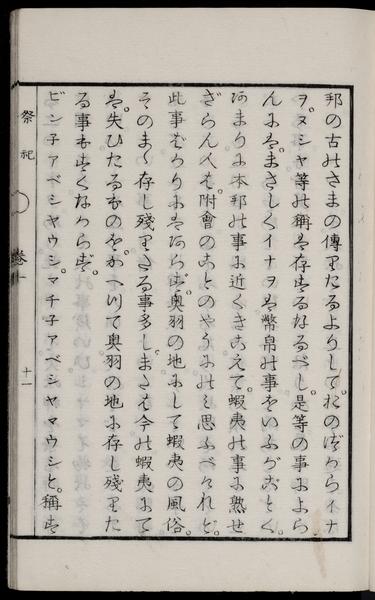 邦の古代さまの傳りたるよりして。おのづからイナ
ヲ。ヌシヤ等の稱は存するなるべし。是等の事によら
んには。まさしくイナヲは幣帛の事をいふがごとく。
あまりに本邦の事に近くきこえて。蝦夷の事に熟せ
ざらん人は。附會のことのやうにのミ思ふべけれど。
此事ばかりにはあらず。奥羽の地にして蝦夷の風俗。
そのまゝ存し殘りたる事多し。または今の蝦夷にて
は失ひたるものをかへつて奥羽の地に存し殘りた
る事もすくなからず。
ビン子アベシヤウシ。マチ子アベシヤマウシと。稱す
祭祀
卷一
十一